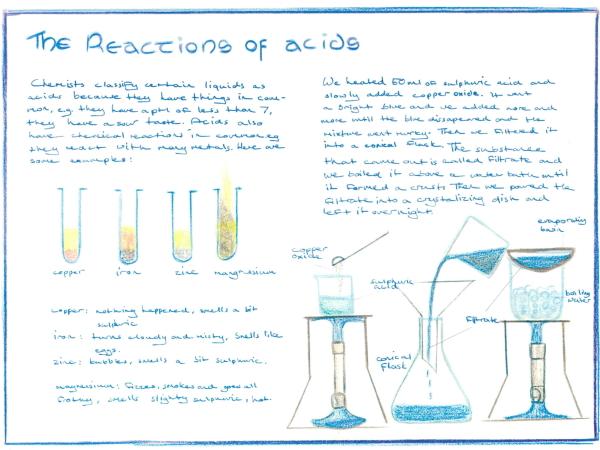 The Reactions of acids
Chemists classify certain liquids as
acids because they have things in com-
mon, eg. they have a pH of less than 7,
they have a sour taste. Acids also
have chemical reactions in common eg
they react with many metals. Here are
some examples:
copper iron zinc magnesium
copper: nothing happened, smells a bit
sulphuric
iron: turns cloudy and misty, smells like
eggs.
zinc: bubbles, smells a bit sulphuric.
magnesium: fizzes, smokes and goes all
frothy, smells slighty sulphuric, hot.
We heated 50ml of sulphuric acid and
slowly added copper oxide. It went
a bright blue and we added more and
more until the blue dissapeared and the
mixture went murky. Then we filtered it
into a conical flask. The substance
that came out is called filtrate and
we boiled it above a water bath until
it formed a crust. Then we poured the
filtrate into a crystalizing dish and
left it overnight.
copper
oxide
sulphuric
acid
conical
flask
filtrate
evaporating
basin
boiling
water